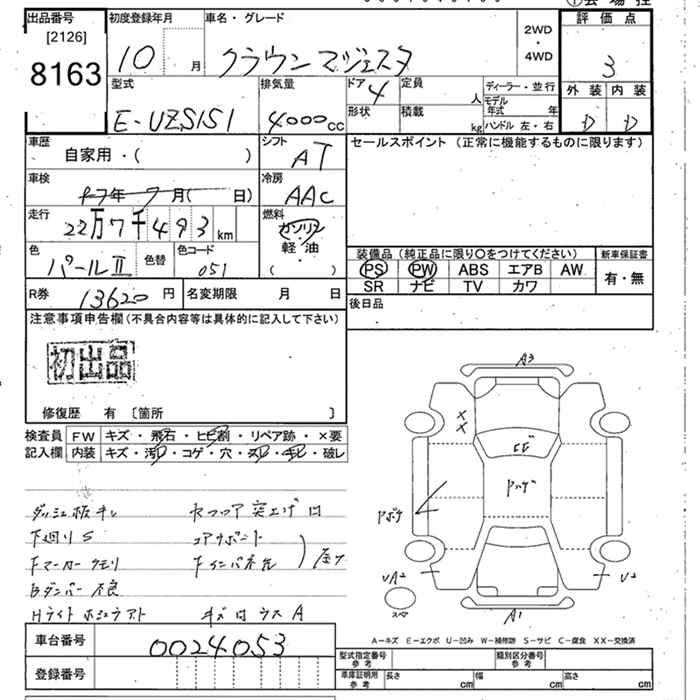 出品番号
[2126]
8163
初度登録年月
10 月
車名・グレード
クラウン マジェスタ
2WD
・
4WD
評価点
3
外装 内装
D D
型式
E-UZS151
排気量
4000cc
ドア
4
定員
人
形状
積載
kg
ディーラー・並行
モデル年式 年
ハンドル 左・右
車歴
自家用・( )
シフト
AT
セールスポイント (正常に機能するものに限ります)
車検
年 月( 日)
冷房
AAC
走行
22万7千493km
燃料
ガソリン
軽油
( )
色
パールⅡ
色替
色コード
051
装備品 (純正品に限り○をつけてください)
新車保証書
PS PW ABS エアB AW
SR ナビ TV カワ
有・無
R券
13620 円
名変期限 月 日
後日品
注意事項申告欄 (不具合内容等は具体的に記入して下さい)
初出品
修復歴 有 〔箇所 〕
検査員
記入欄
FW キズ・飛石・ヒビ割・リペア跡・×要
内装 キズ・汚れ・コゲ・穴・スレ・キレ・破レ
下廻りS
コアサポート
Bダンパー 不良
A3
A1
スペア
A-キズ E-エクボ U-凹み W-補修跡 S-サビ C-腐食 XX-交換済
車台番号
0024053
登録番号
型式指定番号
参考
類別区分番号
参考
車庫証明用
参考
長さ cm
幅 cm
高さ cm